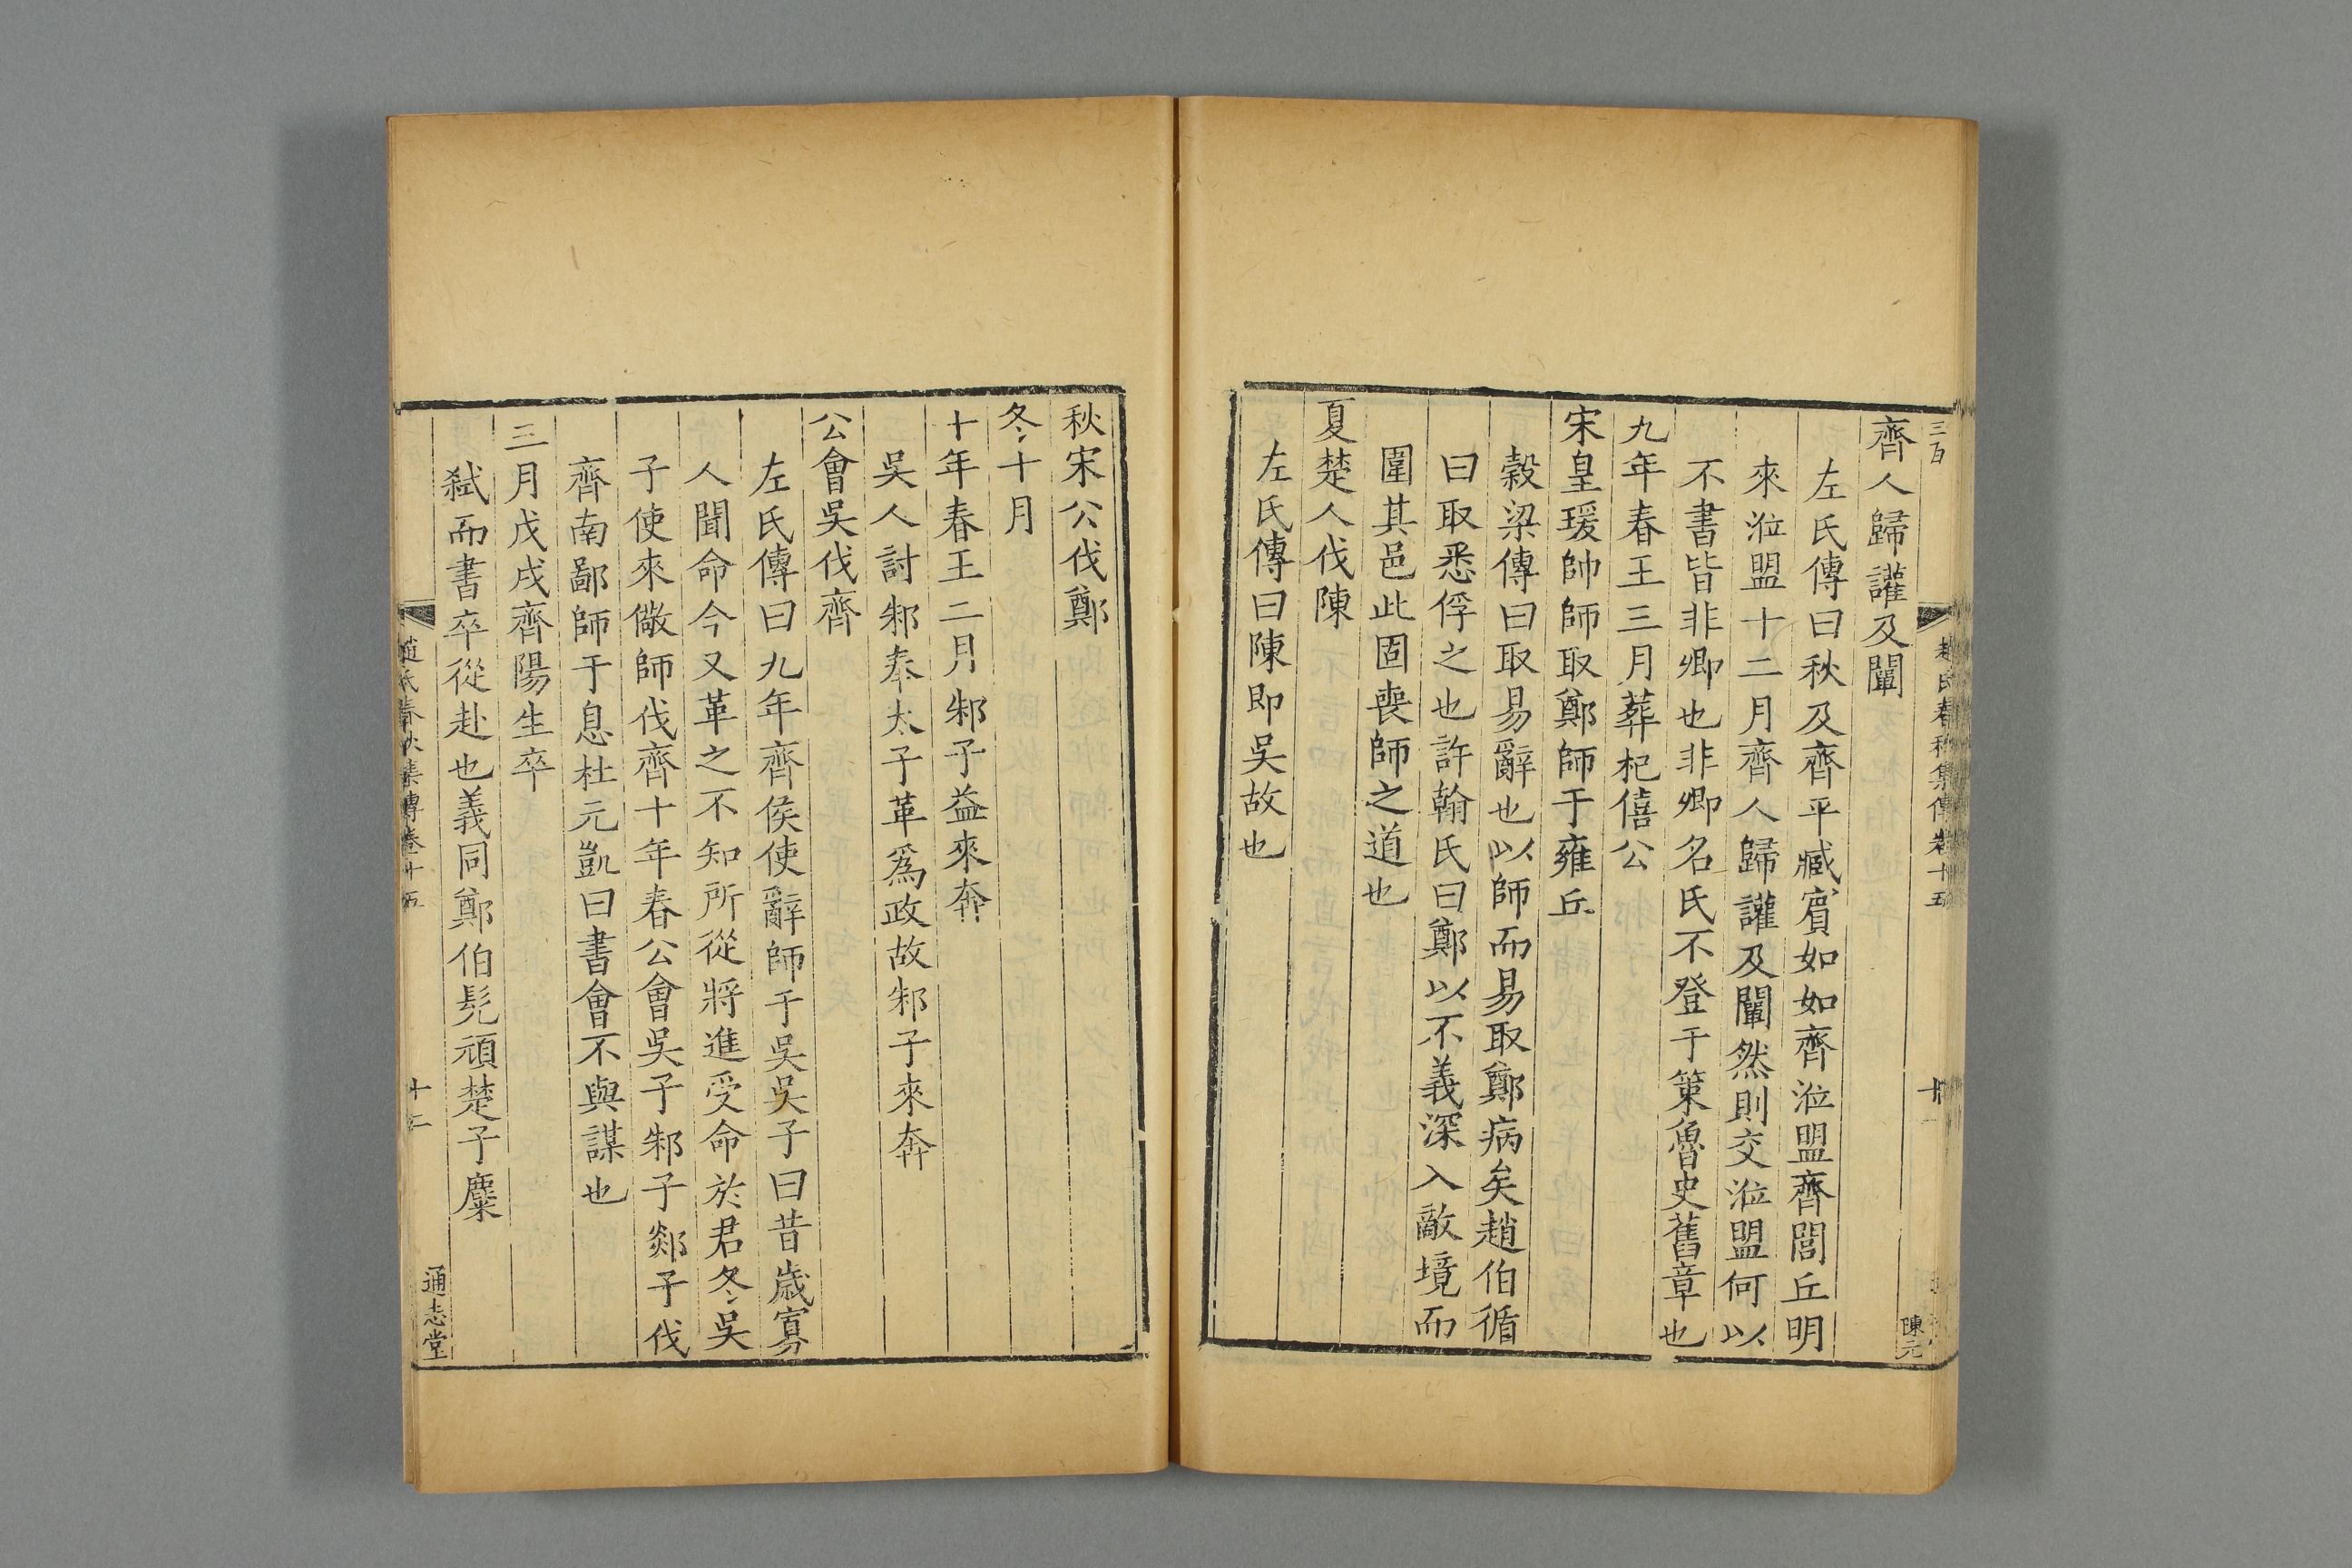 三百
趙氏春秋集傳卷十五
陳元
齊人歸讙及闡
左氏傳曰秋及齊平臧賓如如齊涖盟齊閭丘明
來涖盟十二月齊人歸讙及闡然則交涖盟何以
不書皆非卿也非卿名氏不登于策魯史舊章也
九年春王三月葬杞僖公
宋皇瑗帥師取鄭師于雍丘
穀梁傳曰取易辭也以師而易取鄭病矣趙伯循
曰取悉俘之也許翰氏曰鄭以不義深入敵境而
圍其邑此固喪師之道也
夏楚人伐陳
左氏傳曰陳即吳故也
秋宋公伐鄭
冬十月
十年春王二月邾子益來奔
吳人討邾奉太子革爲政故邾子來奔
公會吳伐齊
左氏傳曰九年齊侯使辭師于吳吳子曰昔歲寡
人聞命今又革之不知所從將進受命於君冬吳
子使來儆師伐齊十年春公會吳子邾子郯子伐
齊南鄙師于息杜元凱曰書會不與謀也
三月戊戌齊陽生卒
弑而書卒從赴也義同鄭伯髠頑楚子麋
趙氏春秋集傳卷十五
十二
通志堂